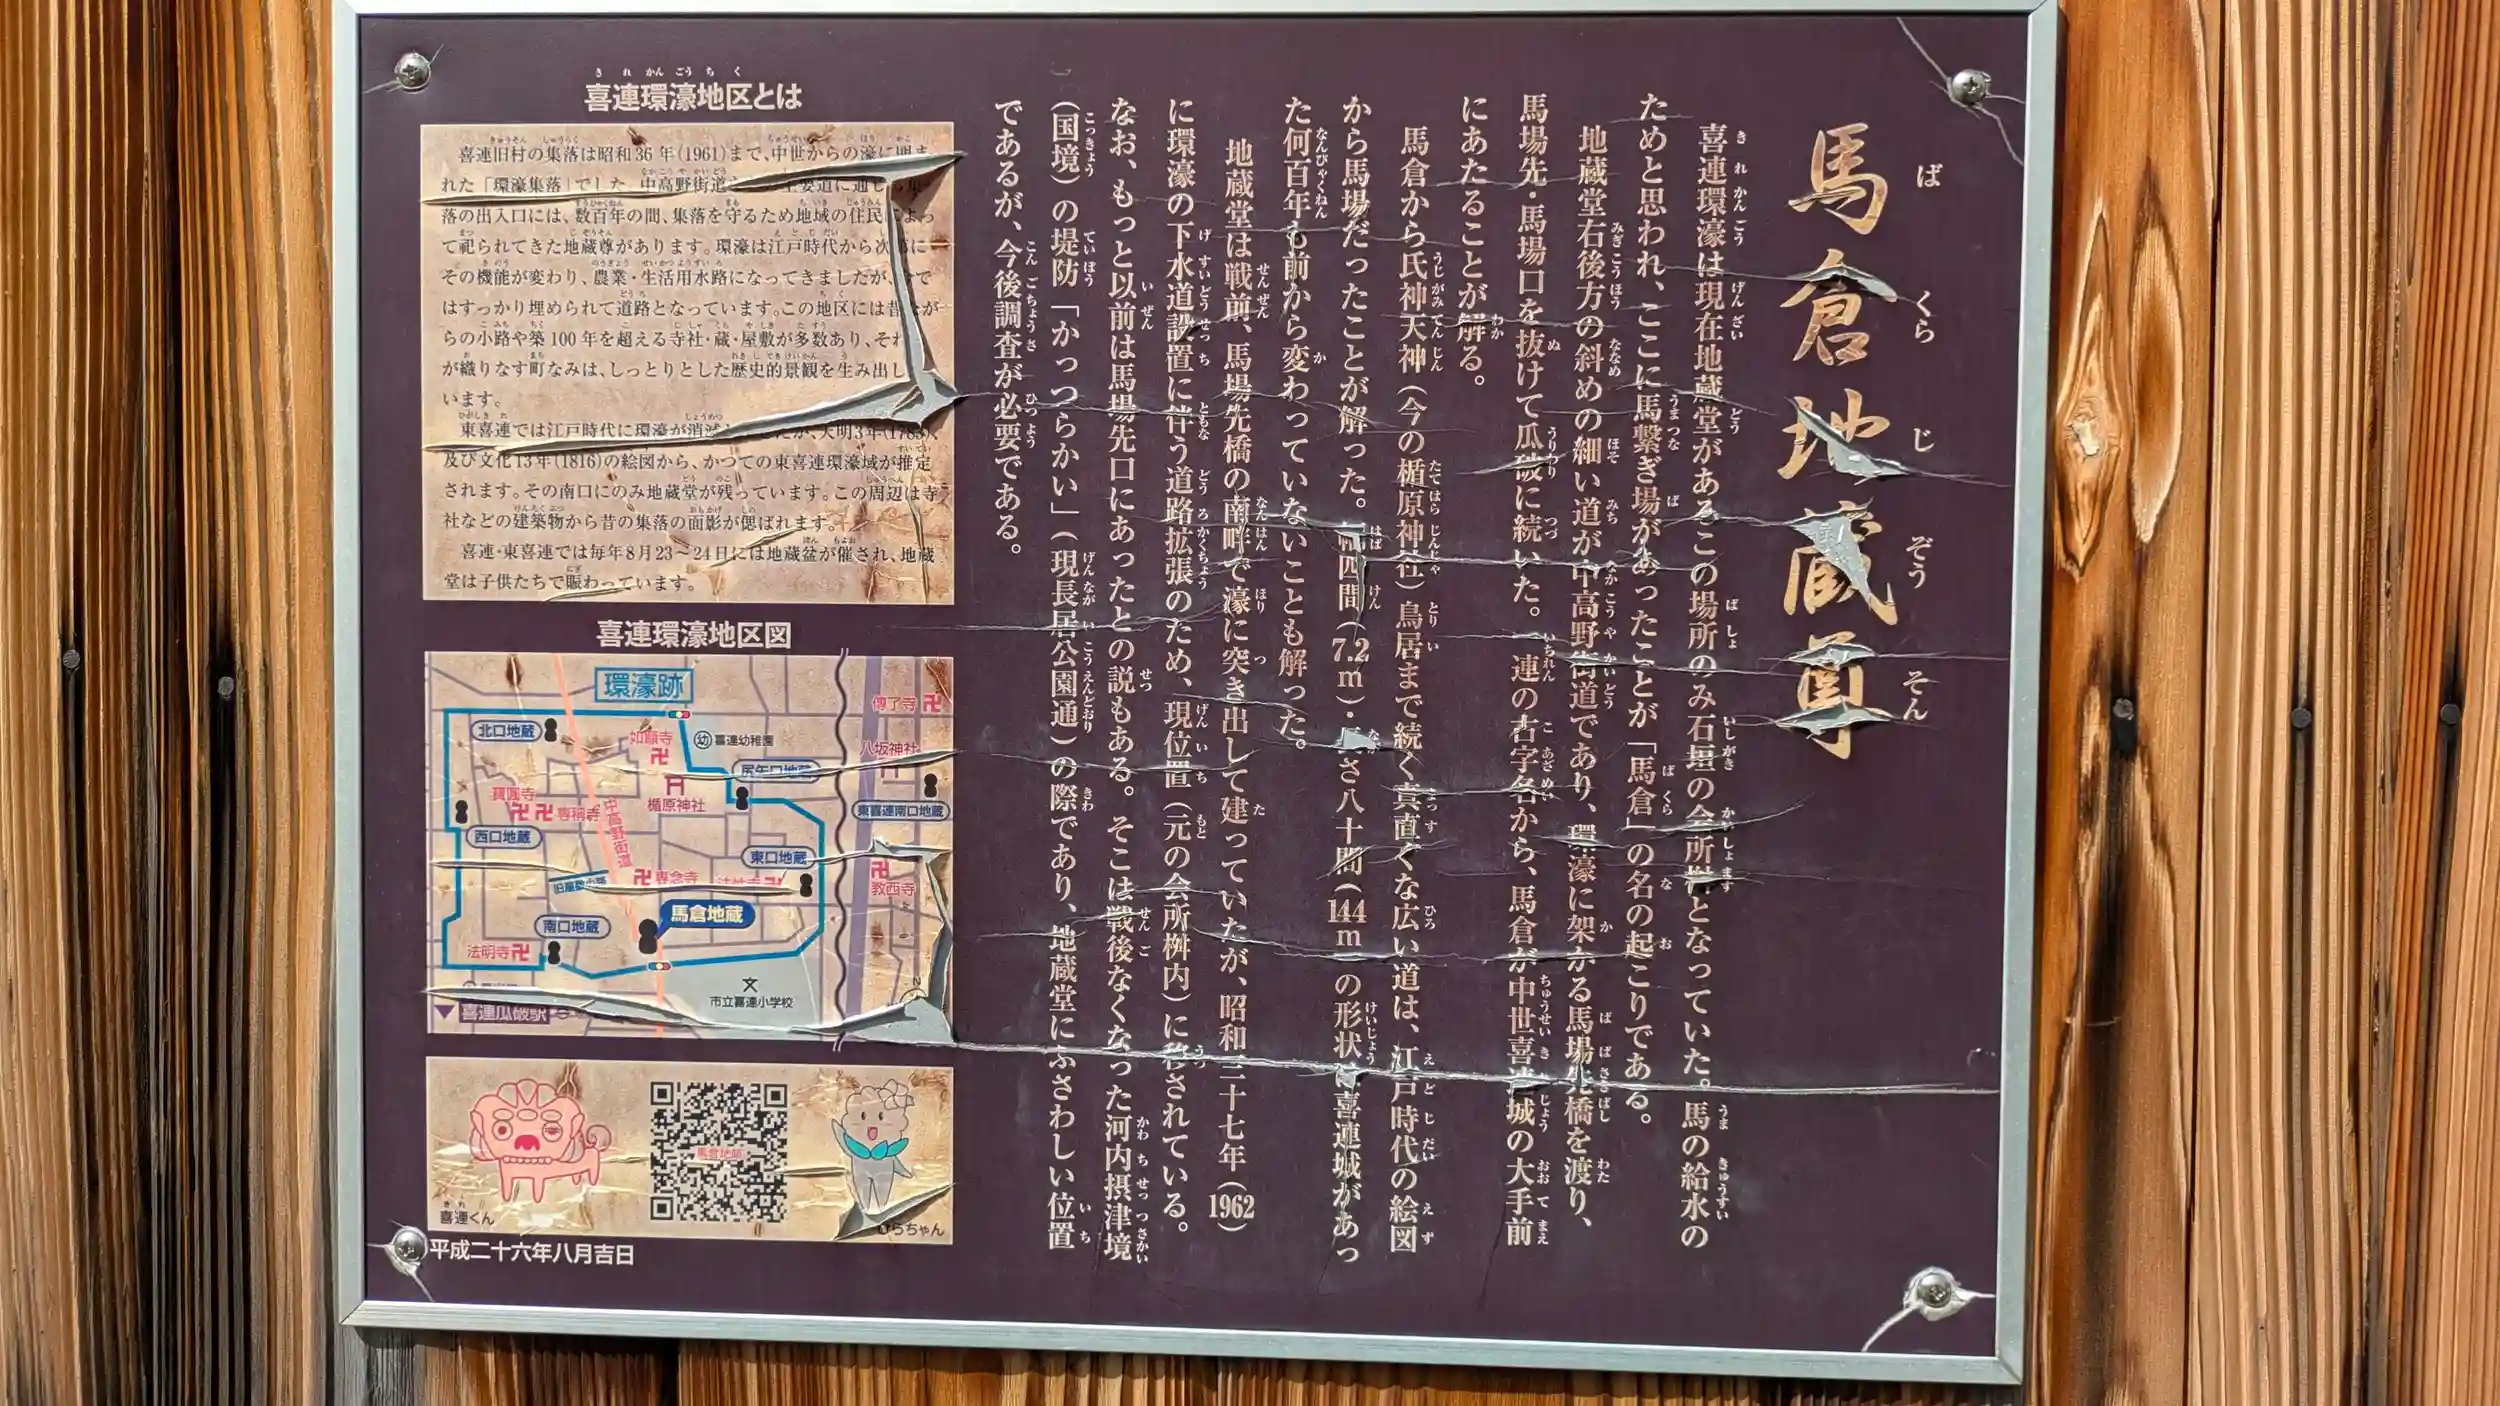 馬倉地蔵尊
ばくらじぞうそん
喜連環濠は現在地蔵堂があるこの場所のみ石垣の会所桝となっていた。馬の給水の
ためと思われ、ここに馬繋ぎ場があったことが「馬倉」の名の起こりである。
地蔵堂右後方の斜めの細い道が中高野街道であり、環濠に架かる馬場先橋を渡り、
馬場先・馬場口を抜けて瓜破に続いた。一連の古字名から、馬倉が中世喜連城の大手前
にあたることが解る。
馬倉から氏神天神（今の楯原神社）鳥居まで続く真直ぐな広い道は、江戸時代の絵図
から馬場だったことが解った。幅四間（7.2m）・長さ八十間（144m）の形状は喜連城があっ
た何百年も前から変わっていないことも解った。
地蔵堂は戦前、馬場先橋の南畔で濠に突き出して建っていたが、昭和三十七年（1962）
に環濠の下水道設置に伴う道路拡張のため、現位置（元の会所桝内）に移されている。
なお、もっと以前は馬場先口にあったとの説もある。そこは戦後なくなった河内摂津境
（国境）の堤防「かっつらかい」（現長居公園通）の際であり、地蔵堂にふさわしい位置
であるが、今後調査が必要である。
きれかんごうちく
喜連環濠地区とは
喜連旧村の集落は昭和36年(1961)まで、中世からの濠に囲ま
れた「環濠集落」でした。中高野街道 主要道に通じ 集
落の出入口には、数百年の間、集落を守るため地域の住民によっ
て祀られてきた地蔵尊があります。環濠は江戸時代から次第に
その機能が変わり、農業・生活用水路になってきましたが、今で
はすっかり埋められて道路となっています。この地区には昔なが
らの小路や築100年を超える寺社・蔵・屋敷が多数あり、それ
が織りなす町なみは、しっとりとした歴史的景観を生み出し
います。
東喜連では江戸時代に環濠が消滅 たが、天明3年(1783)、
及び文化13年(1816)の絵図から、かつての東喜連環濠域が推定
されます。その南口にのみ地蔵堂が残っています。この周辺は寺
社などの建築物から昔の集落の面影が偲ばれます。
喜連・東喜連では毎年8月23～24日には地蔵盆が催され、地蔵
堂は子供たちで賑わっています。
喜連環濠地区図
環濠跡
傳了寺
北口地蔵
如願寺
幼 喜連幼稚園
八坂神社
尻矢口地蔵
寶圓寺
専稱寺
楯原神社
東喜連南口地蔵
西口地蔵
中高野街道
東口地蔵
専念寺
教西寺
馬倉地蔵
南口地蔵
法明寺
文
市立喜連小学校
喜連瓜破駅
馬倉地蔵
喜連くん
きれ
ひらちゃん
平成二十六年八月吉日